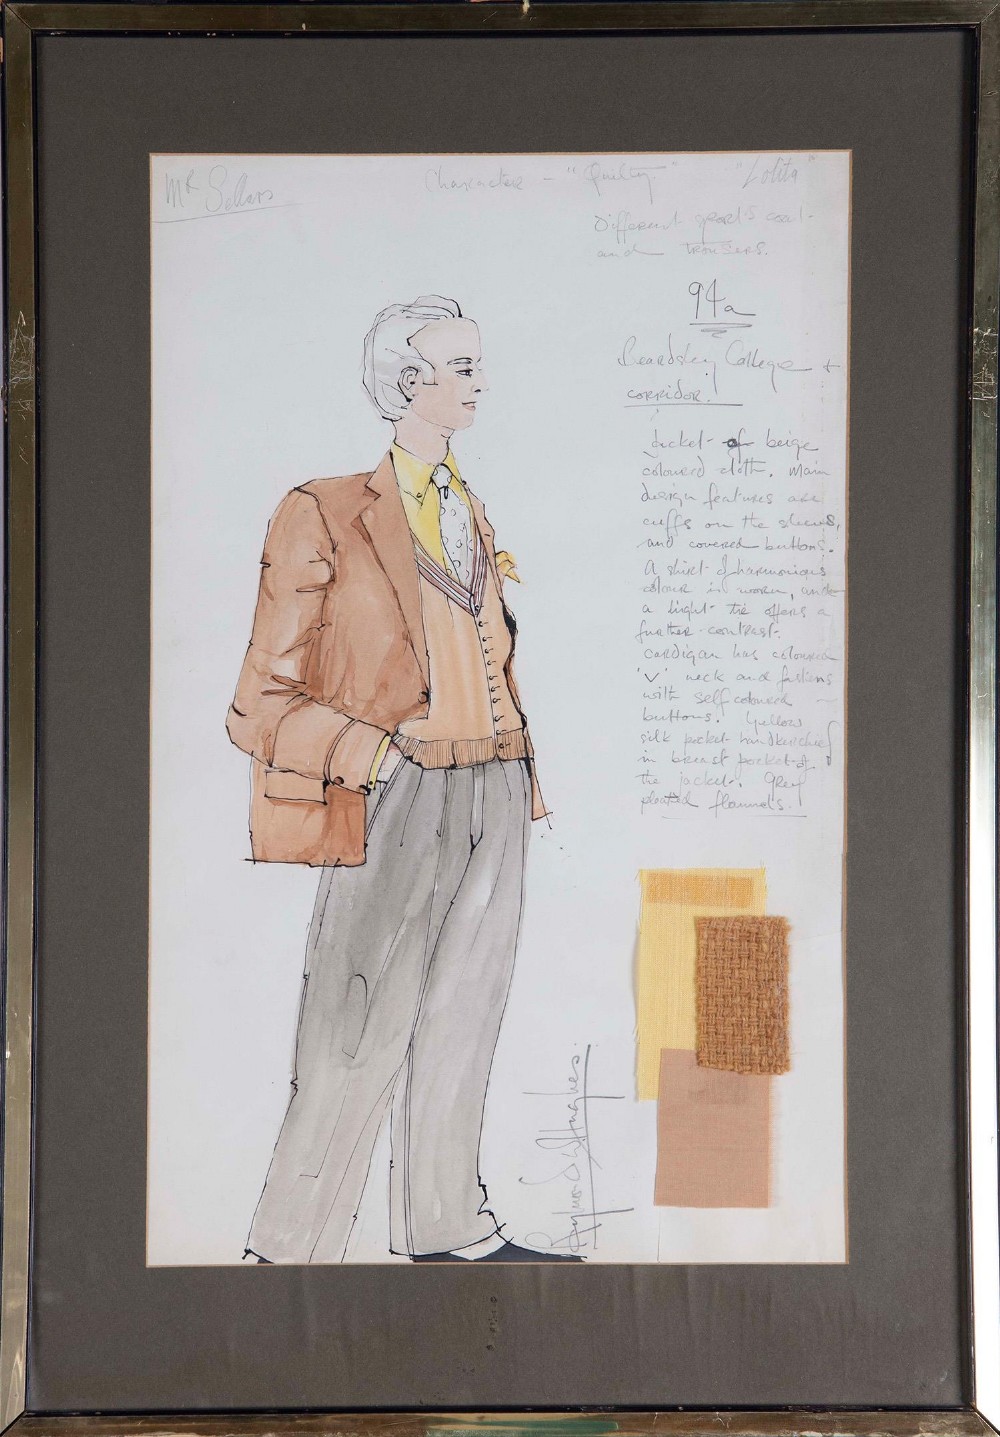 Mr Sellars
Character - "Quilty" "Lolita"
Different sports coat
and trousers.
94a
Beardsley College +
corridor.
Jacket of beige
coloured cloth. Main
design features are
cuffs on the sleeves,
and covered buttons.
A shirt of harmonious
colour is worn, and
a light tie offers a
further contrast.
Cardigan has coloured
'V' neck and fastens
with self coloured
buttons. Yellow
silk pocket handkerchief
in breast pocket of
the jacket. Grey
pleated flannels.
Raymond Hughes.